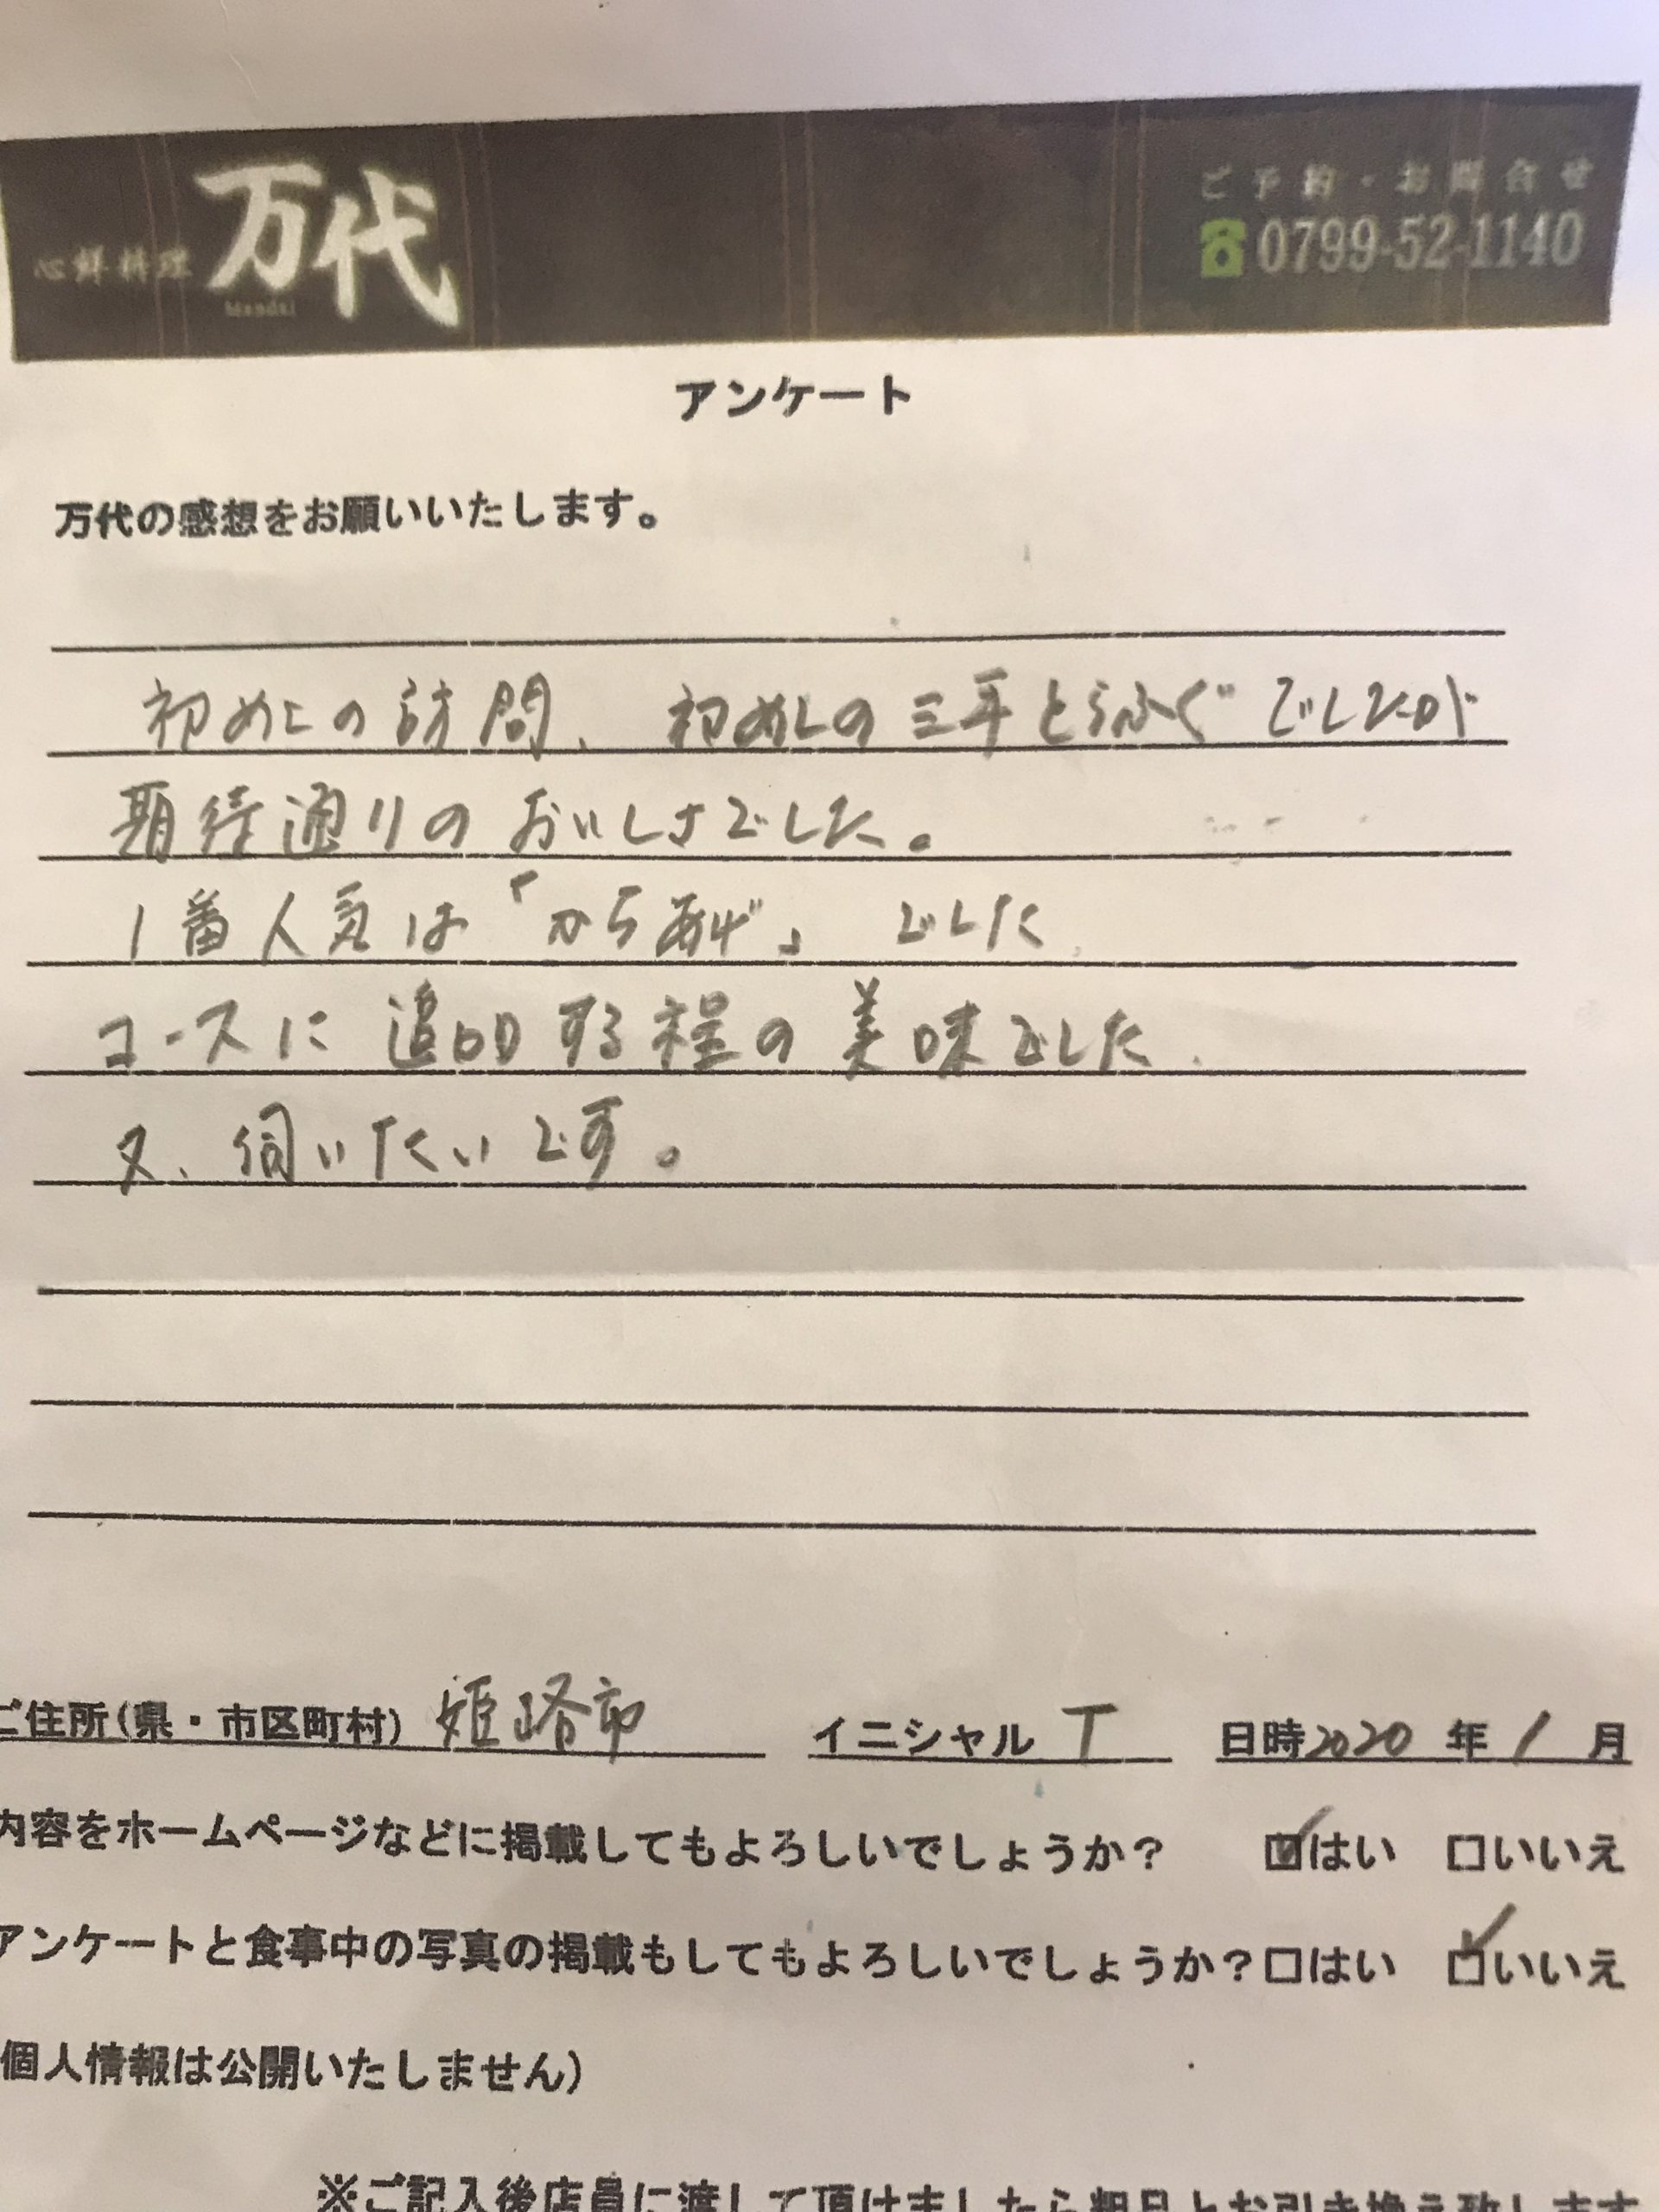 心鮮料理 万代
Mandai
ご予約・お問合せ
0799-52-1140
アンケート
万代の感想をお願いいたします。
初めての訪問、初めての三年とらふぐでしたが
期待通りのおいしさでした。
1番人気は「からあげ」でした
コースに追加する程の美味でした.
又、伺いたいです。
ご住所(県・市区町村) 姫路市 イニシャル T 日時2020 年 1 月
内容をホームページなどに掲載してもよろしいでしょうか? ☑はい □いいえ
アンケートと食事中の写真の掲載もしてもよろしいでしょうか?□はい ☑いいえ
個人情報は公開いたしません)
※ご記入後店員に渡して頂けましたら粗品とお引き換え致します